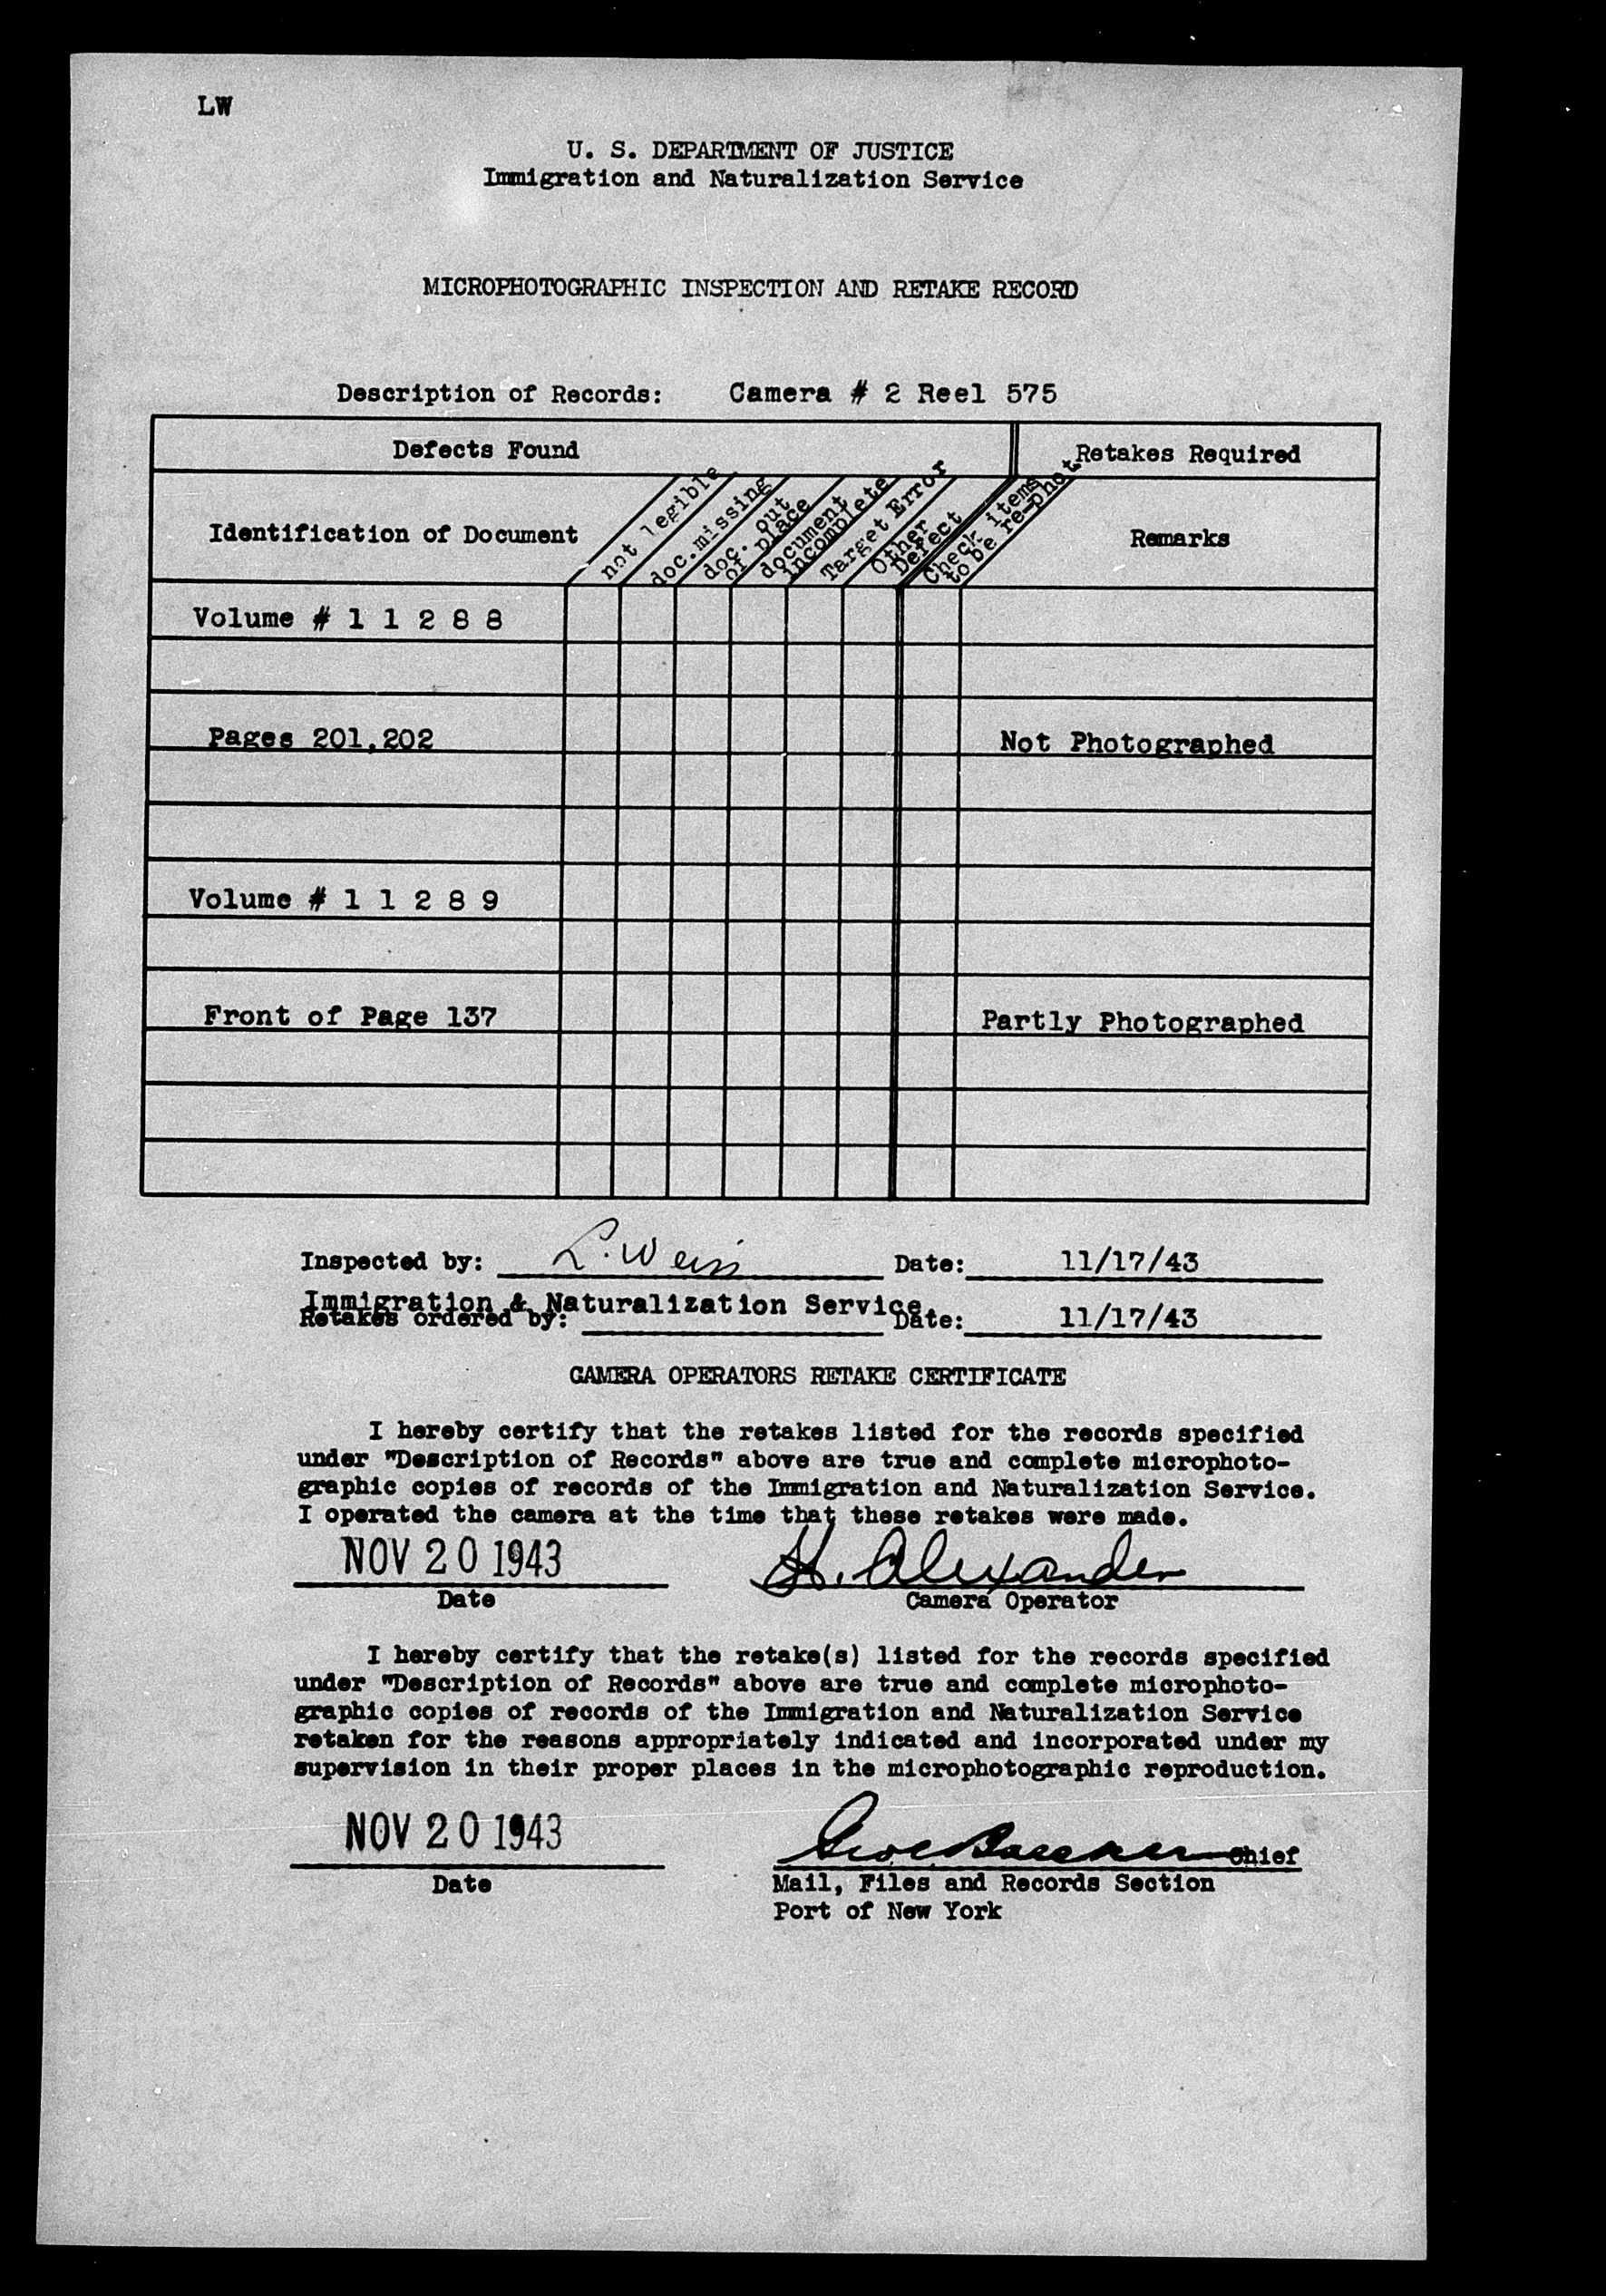 LW
U. S. DEPARTMENT OF JUSTICE
Immigration and Naturalization Service
MICROPHOTOGRAPHIC INSPECTION AND RETAKE RECORD
Description of Records: Camera # 2 Reel 575
Defects Found Retakes Required
Identification of Document
not legible
doc.missing
doc. out
of place
document
incomplete
Target Error
Other
Defect
Check items
to be re-phot
Remarks
Volume # 1 1 2 8 8
Pages 201,202 Not Photographed
Volume # 1 1 2 8 9
Front of Page 137 Partly Photographed
Inspected by: L. Weiss Date: 11/17/43
Immigration & Naturalization Service.
Retakes ordered by: Date: 11/17/43
CAMERA OPERATORS RETAKE CERTIFICATE
I hereby certify that the retakes listed for the records specified
under "Description of Records" above are true and complete microphoto-
graphic copies of records of the Immigration and Naturalization Service.
I operated the camera at the time that these retakes were made.
NOV 20 1943 H. Alexander
Date Camera Operator
I hereby certify that the retake(s) listed for the records specified
under "Description of Records" above are true and complete microphoto-
graphic copies of records of the Immigration and Naturalization Service
retaken for the reasons appropriately indicated and incorporated under my
supervision in their proper places in the microphotographic reproduction.
NOV 20 1943 Chief
Date Mail, Files and Records Section
Port of New York